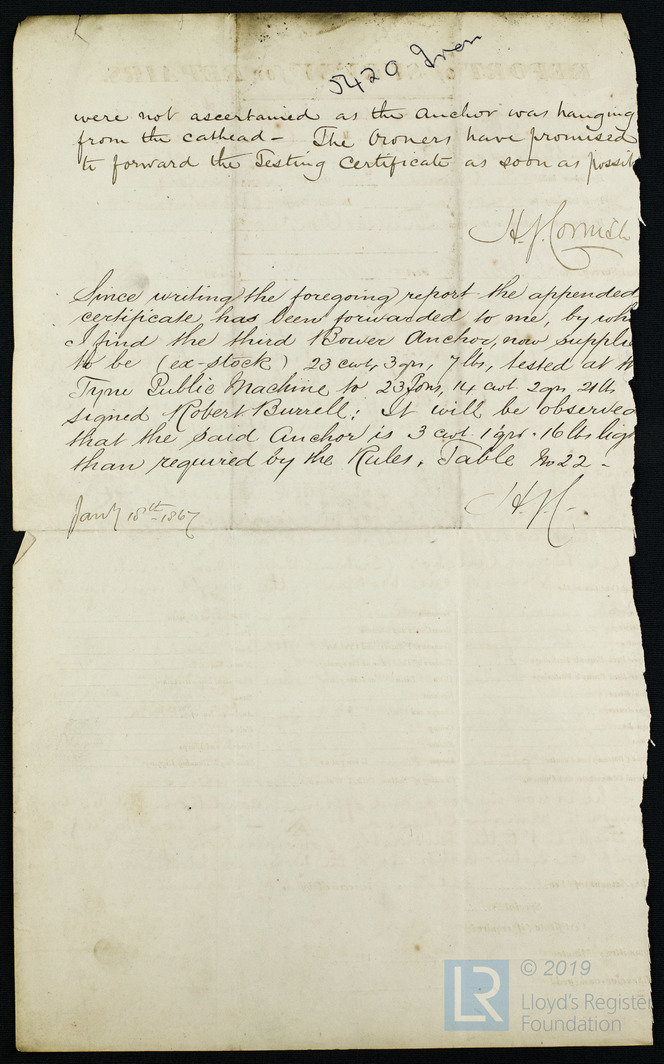 5420 Iron
were not ascertained as the Anchor was hanging
from the cathead - The Owners have promised
to forward the Testing Certificate as soon as possib
H. J. Cornish
Since writing the foregoing report the appended
certificate has been forwarded to me, by whi
I find the third Bower Anchor, now supplie
to be (ex-stock) 23 cwt, 3 qrs, 7 lbs, tested at th
Tyne Public Machine to 23 Tons, 14 cwt 2 qrs 21 lbs
signed Robert Burrell: It will be observed
that the said Anchor is 3 cwt 1 qrs. 16 lbs lig
than required by the Rules, Table No 22 -
H. J. C.
Jany 18th 1867
© 2019
LR
Lloyd's Register
Foundation